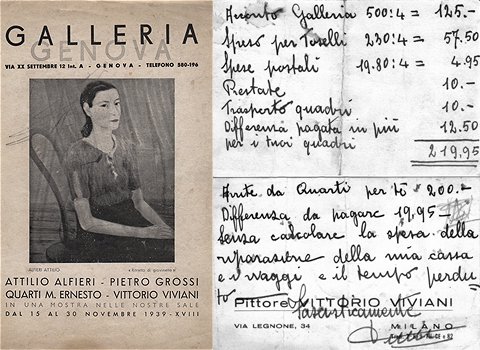 GALLERIA
GENOVA
VIA XX SETTEMBRE 12 Int. A - GENOVA - TELEFONO 580-196
ALFIERI ATTILIO
« Ritratto di giovinetta »
ATTILIO ALFIERI - PIETRO GROSSI
QUARTI M. ERNESTO - VITTORIO VIVIANI
IN UNA MOSTRA NELLE NOSTRE SALE
DAL 15 AL 30 NOVEMBRE 1939 - XVIII
Acconto Galleria 500:4 = 125.-
Spese per Toselli 230:4 = 57.50
Spese postali 19.80:4 = 4.95
Restate 10.-
Trasporto quadri 10.-
Differenza pagata in più 12.50
per i tuoi quadri
219,95
Avute da Quarti per te 200.-
Differenza da pagare 19,95-
Senza calcolare la spesa della
riparazione della mia cassa
e i viaggi e il tempo perdu
to
Pittore VITTORIO VIVIANI
Fascisticamente
VIA LEGNONE, 34
MILANO